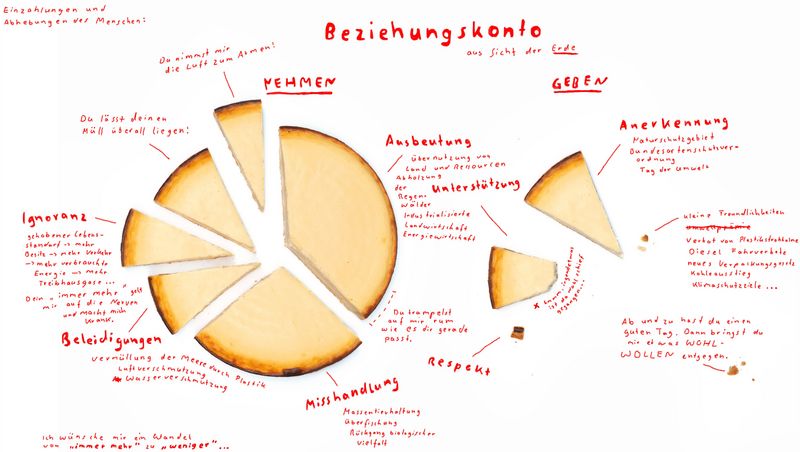 Einzahlungen und
Abhebungen des Menschen:
Beziehungskonto
aus Sicht der Erde
NEHMEN
GEBEN
Du nimmst mir
die Luft zum Atmen!
Du lässt deinen
Müll überall liegen!
Ausbeutung
Übernutzung von
Land und Ressourcen
Abholzung
der
Regen-
wälder
Industrialisierte
Landwirtschaft
Energiewirtschaft
Ignoranz
gehobener Lebens-
standard -> mehr
Besitz -> mehr Verkehr
-> mehr verbrauchte
Energie -> mehr
Treibhausgase ...
Dein „immer mehr" geht
mir auf die Nerven
und macht mich
krank.
Beleidigungen
Vermüllung der Meere durch Plastik
Luftverschmutzung
Wasserverschmutzung
Misshandlung
Massentierhaltung
Überfischung
Rückgang biologischer
Vielfalt
Du trampelst
auf mir rum
wie es dir gerade
passt.
Anerkennung
Naturschutzgebiet
Bundesartenschutzver-
ordnung
Tag der Umwelt
Unterstützung
x hmm... irgendetwas
ist da wohl schief
gegangen...
Respekt
kleine Freundlichkeiten
Umweltprämie
Verbot von Plastikstrohhalme
Diesel Fahrverbote
neues Verpackungsgesetz
Kohleausstieg
Klimaschutzziele ...
Ab und zu hast du einen
guten Tag. Dann bringst du
mir etwas WOHL-
WOLLEN entgegen.
Ich wünsche mir ein Wandel
von „immer mehr" zu „weniger"...